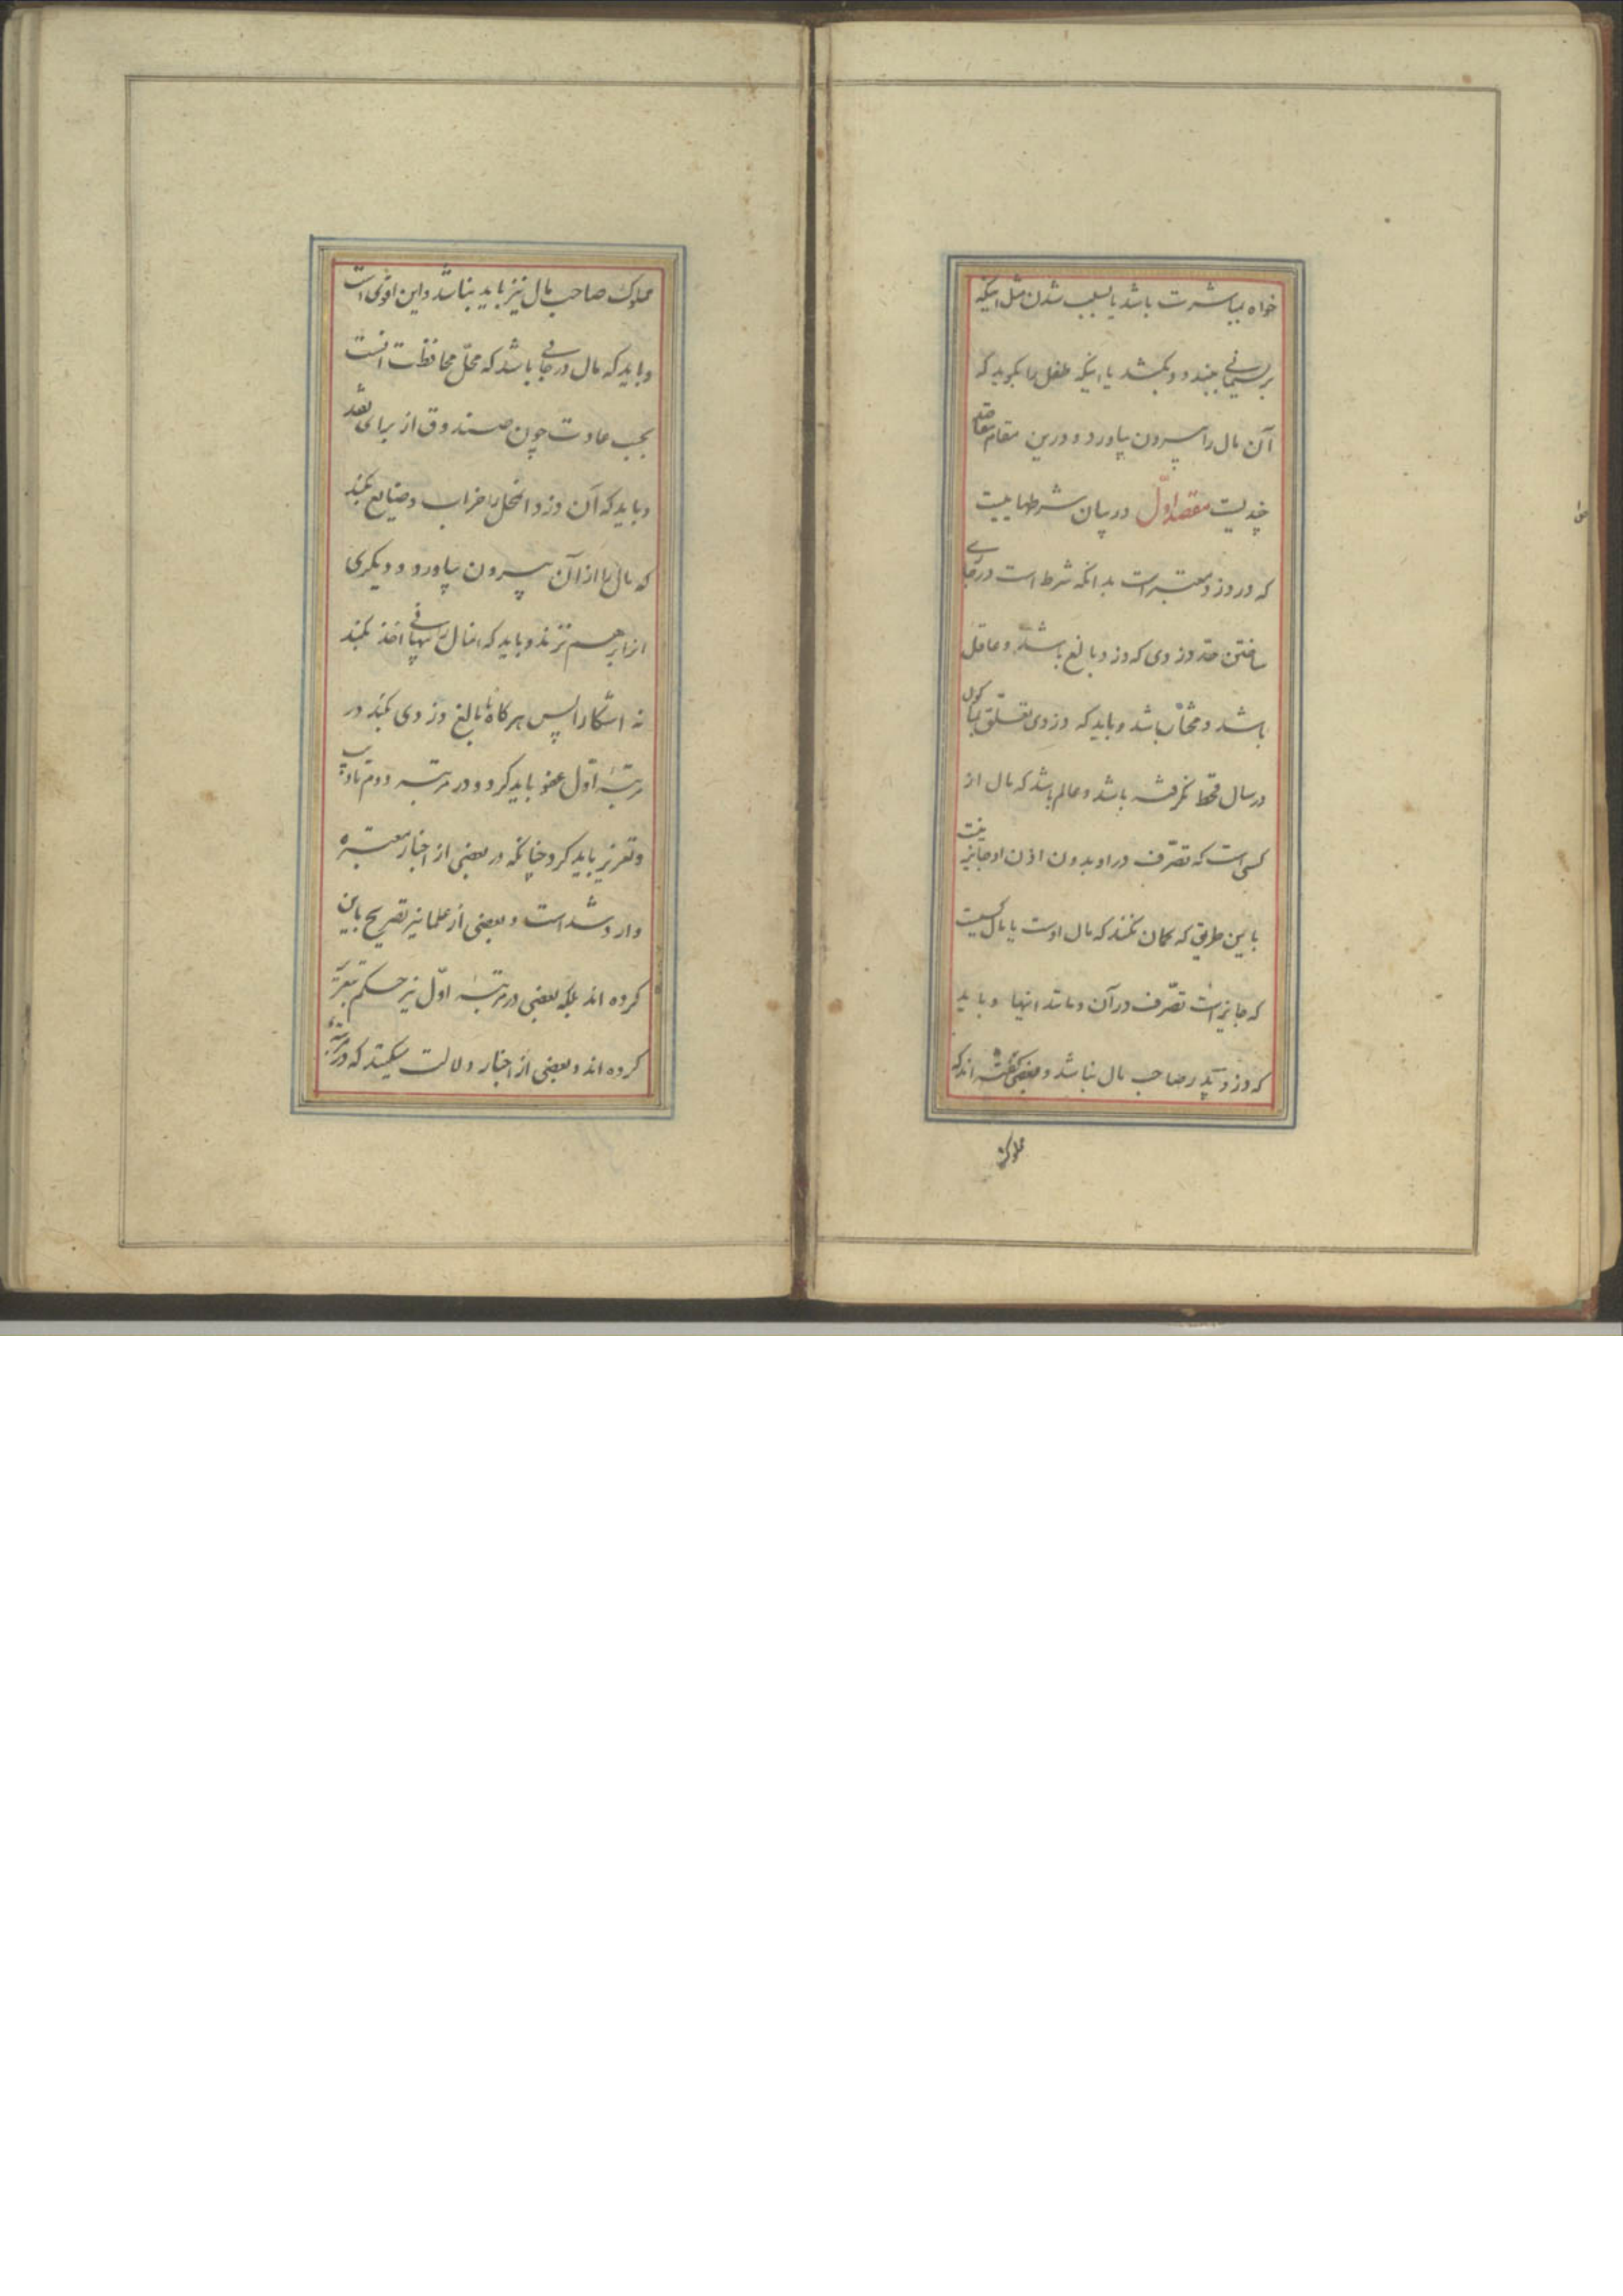 خواه بمباشرت باشد یا بسبب شدن مثل اینکه
بریسمانی ببندد و بکشد یا اینکه طفل را بگوید که
آن مال را بیرون بیاورد و درین مقام مقاصد
چندیست مقصد اول در بیان شرطهاییست
که در دزد معتبر است بدانکه شرط است در جاری
ساختن حد دزدی که دزد بالغ باشد و عاقل
باشد و مختار باشد و باید که دزدی تعلق بماکول
در سال قحط نگرفته باشد و عالم باشد که مال از
کسی است که تصرف در او بدون اذن او جایز نیست
باین طریق که گمان نکند که مال اوست یا مال کسیست
که جایز است تصرف در آن و مانند اینها و باید
که دزد پدر صاحب مال نباشد و بعضی گفته اند که
مملوک
مملوک صاحب مال نیز باید نباشد و این اقوی است
و باید که مال در جائی باشد که محل محافظت آنست
بحسب عادت چون صندوق از برای نقد
و باید که آن دزد انمحل را خراب و ضایع بکند
که مال را از آن بیرون بیاورد و دیگری
انرا برهم نزند و باید که انمال را پنهانی اخذ بکند
نه اشکارا پس هرگاه نابالغ دزدی بکند در
مرتبه اول عفو باید کرد و در مرتبه دوم تادیب
و تعزیر باید کرد چنانکه در بعضی از اخبار معتبره
وارد شده است و بعضی از علما نیز تصریح باین
کرده اند بلکه بعضی در مرتبه اول نیز حکم بتعزیر
کرده اند و بعضی از اخبار دلالت میکند که در مرتبه